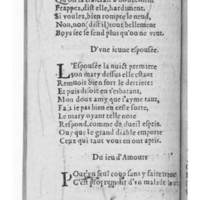 Frappez, dist elle, hardiment,
Si voulez, bien rompre le neud,
Non, non (dist il) tout bellement
Boys sec se fend plus qu'on ne veut.
D'vne ieune espousée.
L'Espousée la nuict permiere
Son mary dessus elle estant
Remnoit bien fort le derriere
Et puis disoit en s'esbatant,
Mon doux amy que i'ayme tant,
Fais ie pas bien en cette sorte,
Le mary oyant telle note
Respond, comme de dueil espris,
Ouy, que le grand diable emporte
Ceux qui tant vous en ont apris.
Du ieu d'Amours
Pour en seul coup sans y faire
C'est d'vn malade